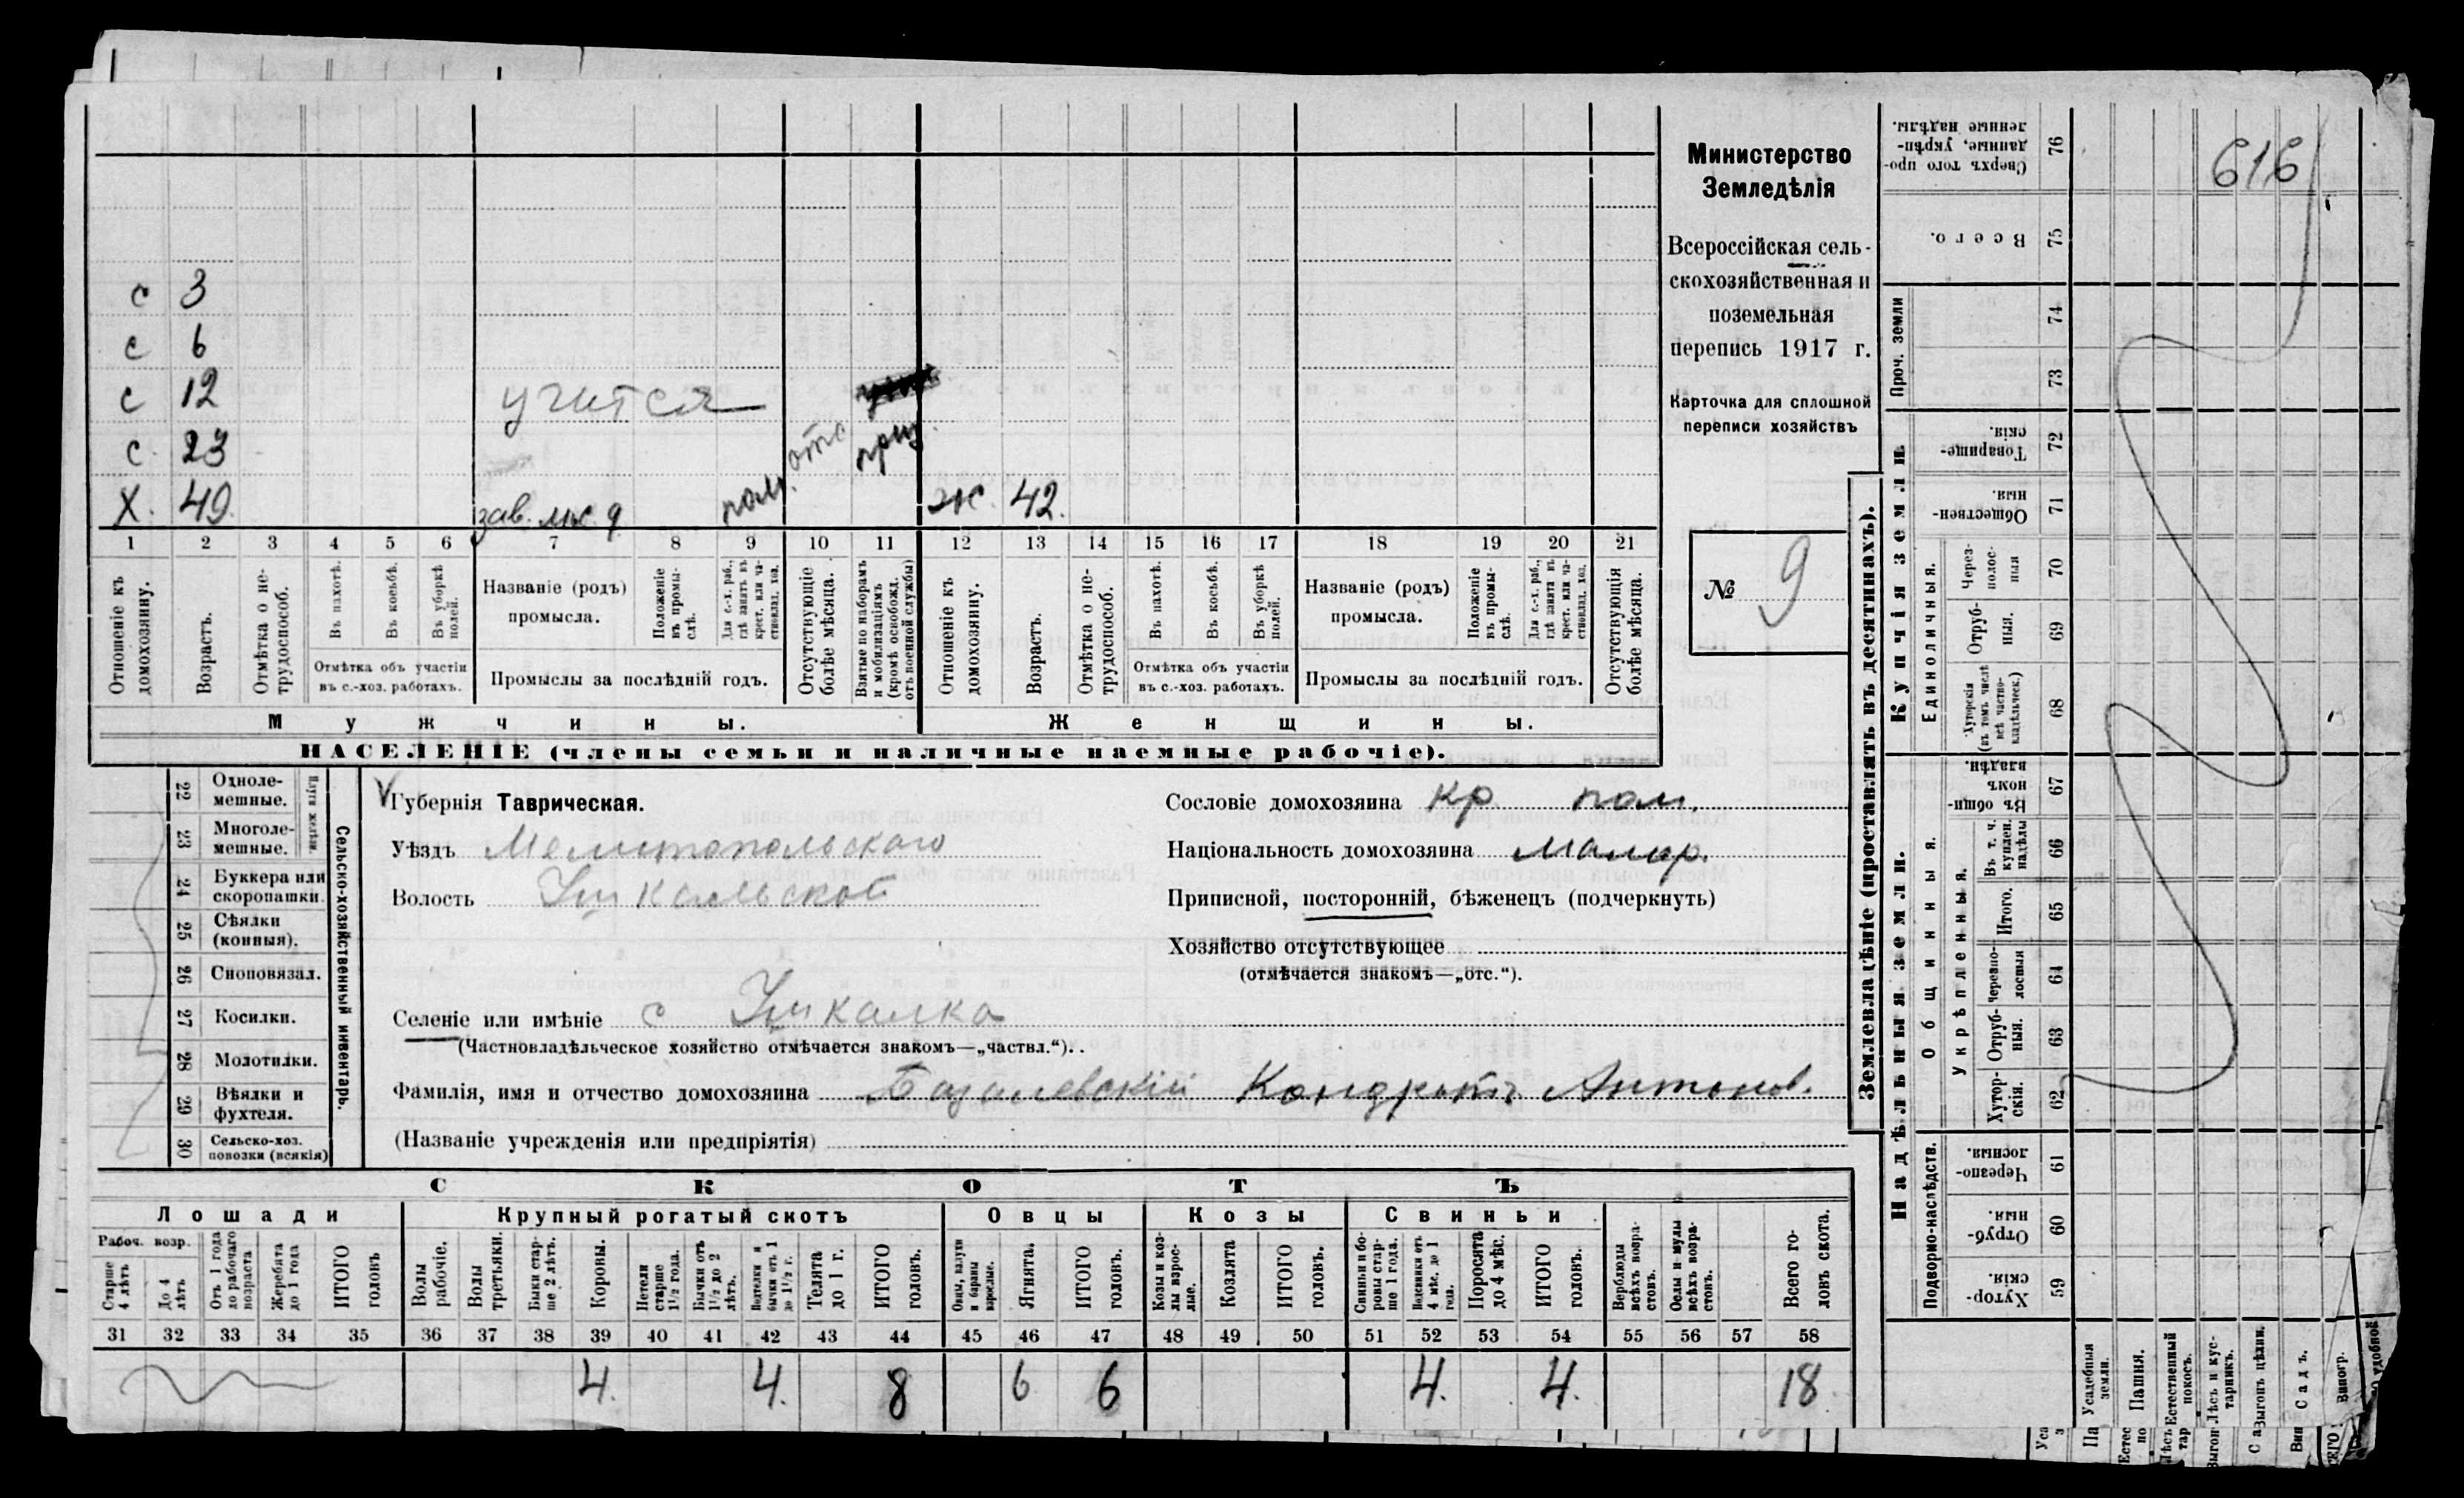 616
с 3
с 6
с 12 учится
с 23 отс приз.
Х. 49 зав. пом. ж. 42.
1 2 3 4 5 6 7 8 9 10 11 12 13 14 15 16 17 18 19 20 21
Отношеніе къ домохозяину.
Возрастъ.
Отмѣтка о не-трудоспособ.
Въ пахотѣ.
Въ косьбѣ.
Въ уборкѣ полей.
Отмѣтка объ участіи
въ с.-хоз. работахъ.
Названіе (родъ)
промысла.
Положеніе въ промы-слѣ.
Для с.-х. раб., гдѣ занятъ въ крест. или ча-стновлад. хоз.
Промыслы за послѣдній годъ.
Отсутствующіе болѣе мѣсяца.
Взятые по наборамъ и мобилизаціямъ (кромѣ освобожд. отъ военной службы)
Отношеніе къ домохозяину.
Возрастъ.
Отмѣтка о не-трудоспособ.
Въ пахотѣ.
Въ косьбѣ.
Въ уборкѣ полей.
Отмѣтка объ участіи
въ с.-хоз. работахъ.
Названіе (родъ)
промысла.
Положеніе въ промы-слѣ.
Для с.-х. раб., гдѣ занята въ крест. или ча-стновлад. хоз.
Промыслы за послѣдній годъ.
Отсутствующія болѣе мѣсяца.
Мужчины.
Женщины.
НАСЕЛЕНІЕ (члены семьи и наличные наемные рабочіе).
Министерство
Земледѣлія
Всероссійская сель-
скохозяйственная и
поземельная
перепись 1917 г.
Карточка для сплошной
переписи хозяйствъ
№ 9
22 Одноле-мешные.
23 Многоле-мешные.
Плуги желѣзн.
24 Буккера или скоропашки.
25 Сѣялки (конныя).
26 Сноповязал.
27 Косилки.
28 Молотилки.
29 Вѣялки и фухтеля.
30 Сельско-хоз. повозки (всякія)
Сельско-хозяйственный инвентарь.
Губернія Таврическая.
Уѣздъ Мелитопольскаго
Волость Ушкальской
Селеніе или имѣніе с Ушкалка
(Частновладѣльческое хозяйство отмѣчается знакомъ—„частвл.“)..
Фамилія, имя и отчество домохозяина Базалевскій Кондратъ Антонов.
(Названіе учрежденія или предпріятія)
Сословіе домохозяина кр пом.
Національность домохозяина малор.
Приписной, посторонній, бѣженецъ (подчеркнуть)
Хозяйство отсутствующее
(отмѣчается знакомъ—„отс.“).
СКОТЪ
Лошади
Крупный рогатый скотъ
Овцы
Козы
Свиньи
Рабоч. возр.
Старше 4 лѣтъ
До 4 лѣтъ
Отъ 1 года до рабочаго возраста
Жеребята до 1 года
ИТОГО головъ
Волы рабочіе.
Волы третьяки.
Быки стар-ше 2 лѣтъ.
Коровы.
Нетели старше 1½ года.
Бычки отъ 1½ до 2 лѣтъ.
Подтелки и бычки отъ 1 до 1½ г.
Телята до 1 г.
ИТОГО головъ.
Овцы, валухи и бараны взрослые.
Ягнята.
ИТОГО головъ.
Козы и коз-лы взрос-лые.
Козлята
ИТОГО головъ.
Свиньи и бо-ровы стар-ше 1 года.
Подсвинки отъ 4 мѣс. до 1 года.
Поросята до 4 мѣс.
ИТОГО головъ.
Верблюды всѣхъ возра-стовъ.
Ослы и мулы всѣхъ возра-стовъ.
Всего го-ловъ скота.
31 32 33 34 35 36 37 38 39 40 41 42 43 44 45 46 47 48 49 50 51 52 53 54 55 56 57 58
4. 4. 8 6 6 4. 4. 18
Землевладѣніе (проставлять въ десятинахъ).
Купчія земли.
Надѣльныя земли.
Сверхъ того про-данные, укрѣп-ленные надѣлы. 76
Всего. 75
Проч. земли
74
73
Товарище-скія. 72
Обществен-ныя. 71
Единоличныя.
Через-полос-ныя 70
Отруб-ныя. 69
Хуторскія (въ томъ числѣ всѣ частно-владѣльческ.) 68
Общинныя.
Въ общин-номъ владѣн. 67
Укрѣпленныя.
Въ т. ч. куплен. надѣлы 66
Итого. 65
Черезпо-лосныя 64
Отруб-ныя. 63
Хутор-скія. 62
Подворно-наслѣдств.
Черезпо-лосныя. 61
Отруб-ныя. 60
Хутор-скія. 59
Усадебныя земли.
Пашня.
Естественный покосъ.
Лѣсъ и кус-тарникъ.
Выгонъ цѣлин.
Садъ.
Виногр.